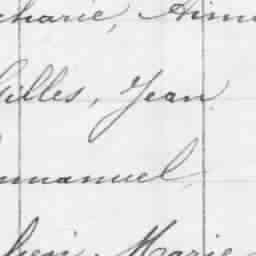 charie, Aim
Gilles, Jean
mmanuel
hein, Marie